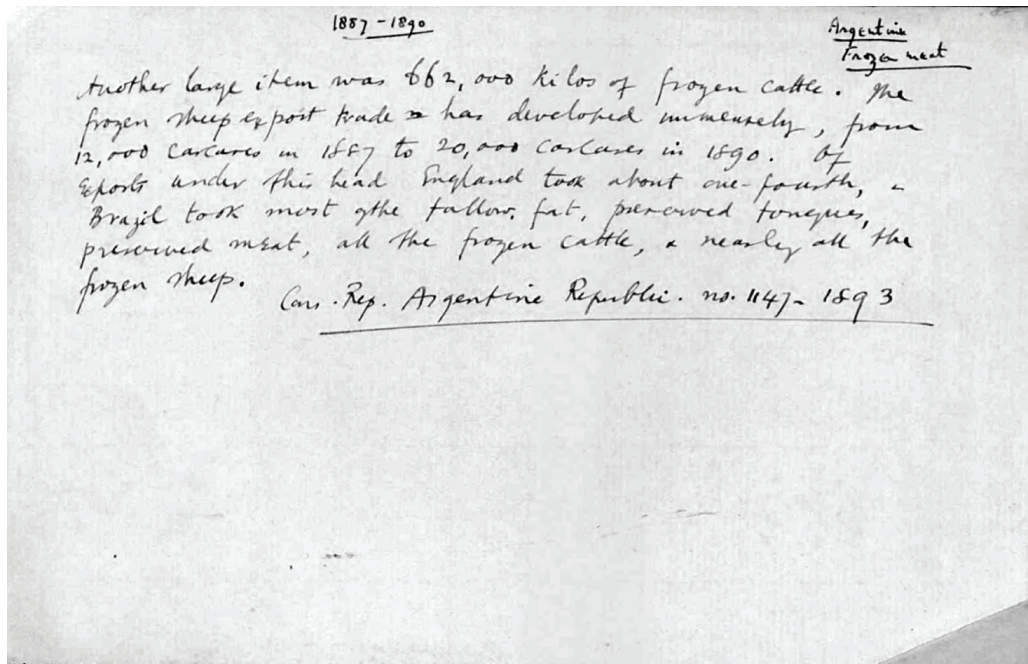 1887-1890
Argentine
Frozen meat
Another large item was 662,000 kilos of frozen cattle. The
frozen sheep export trade has developed immensely, from
12,000 carcases in 1887 to 20,000 carcases in 1890. Of
exports under this head England took about one-fourth, &
Brazil took most of the tallow, fat, preserved tongues,
preserved meat, all the frozen cattle, & nearly all the
frozen sheep.
Cons. Rep. Argentine Republic. no. 1147-1893